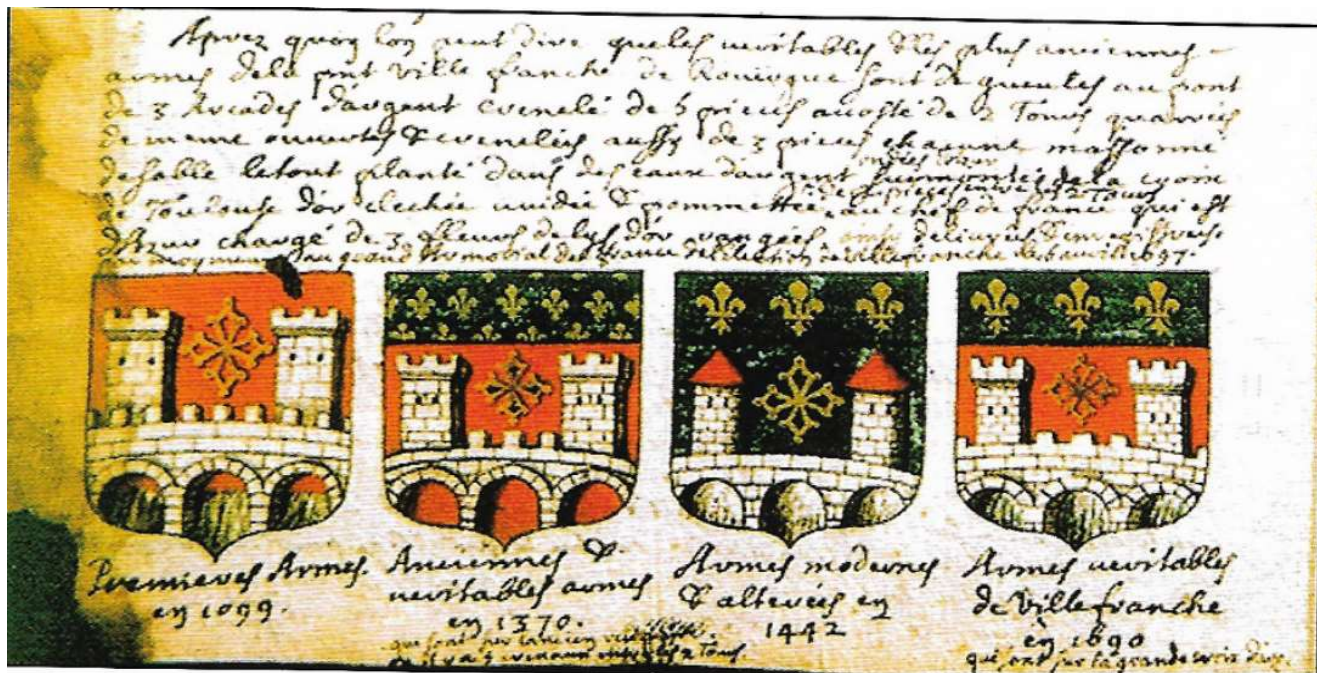 Aprez quoy lon peut dire que les veritables & les plus anciennes
armes de la pnt ville franche de Roüergue sont de gueules au pont
de 3 Arcades d'argent crenelé de 5 pieces acosté de 2 Tours quarrées
de meme ouvertes & crenelées aussy de 3 pieces chacune massonné
de sable le tout planté dans des eaux d'argent surmonté de la croix
de Toulouse d'or clechée vuidée & pommettée, au chef de france qui est
d'Azur chargé de 3 fleurs de lys d'or rangées
au grand Armorial de france de l'election de villefranche 1697.
Premieres Armes.
en 1099.
Anciennes &
veritables armes
en 1370.
Armes modernes
& alterées en
1442
Armes veritables
de Villefranche
en 1690
qui sont sur la grande croix d'or.